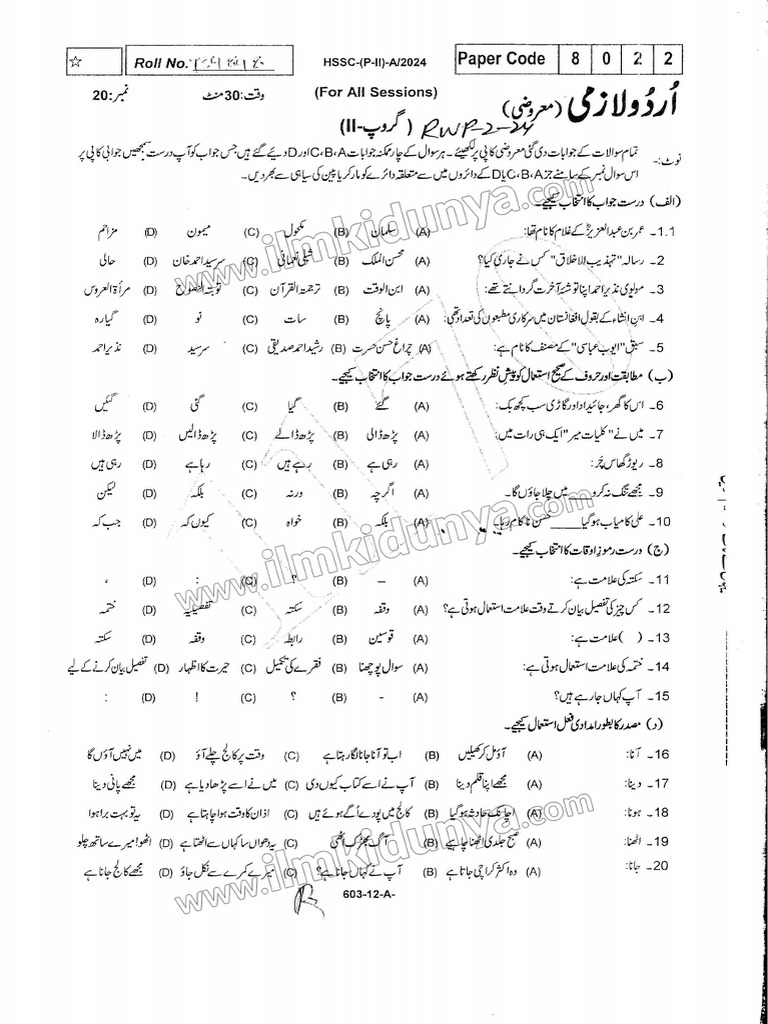 ☆ Roll No. HSSC-(P-II)-A/2024 Paper Code 8 0 2 2
اُردُو لازمی (معروضی) (For All Sessions) وقت: 30 منٹ نمبر: 20
RWP-2-24 (گروپ-II)
نوٹ:- تمام سوالات کے جوابات دی گئی معروضی کاپی پر لکھیئے۔ ہر سوال کے چار ممکنہ جوابات A، B، C اور D دیئے گئے ہیں جس جواب کو آپ درست سمجھیں جوابی کاپی پر
اس سوال نمبر کے سامنے جز A، B، C یا D کے دائروں میں سے متعلقہ دائرے کو مارکر یا پین کی سیاہی سے بھر دیں۔
(الف) درست جواب کا انتخاب کیجیے۔
1.1- عمر بن عبدالعزیزؒ کے غلام کا نام تھا: (A) سلمان (B) مکحول (C) میمون (D) مزاحم
2- رسالہ "تہذیب الاخلاق" کس نے جاری کیا؟ (A) محسن الملک (B) شبلی نعمانی (C) سرسید احمد خان (D) حالی
3- مولوی نذیر احمد اپنا توشۂ آخرت گردانتے تھے: (A) ابن الوقت (B) ترجمۃ القرآن (C) توبۃ النصوح (D) مرأۃ العروس
4- ابنِ انشاء کے بقول افغانستان میں سرکاری مطبعوں کی تعداد تھی: (A) پانچ (B) سات (C) نو (D) گیارہ
5- سبق "ایوب عباسی" کے مصنف کا نام ہے: (A) چراغ حسن حسرت (B) رشید احمد صدیقی (C) سرسید (D) نذیر احمد
(ب) مطابقت اور حروف کے صحیح استعمال کو پیش نظر رکھتے ہوئے درست جواب کا انتخاب کیجیے۔
6- اس کا گھر، جائیداد اور گاڑی سب کچھ بِک: (A) گئے (B) گیا (C) گئی (D) گئیں
7- میں نے "کلیات میر" ایک ہی رات میں: (A) پڑھ ڈالی (B) پڑھ ڈالے (C) پڑھ ڈالیں (D) پڑھ ڈالا
8- ریوڑ گھاس چَر: (A) رہی ہے (B) رہے ہیں (C) رہا ہے (D) رہی ہیں
9- مجھے تنگ نہ کرو ____ میں چلا جاؤں گا۔ (A) اگرچہ (B) ورنہ (C) بلکہ (D) لیکن
10- علی کامیاب ہو گیا ____ حسن ناکام رہا۔ (A) بلکہ (B) خواہ (C) کیوں کہ (D) جب کہ
(ج) درست رموزِ اوقات کا انتخاب کیجیے۔
11- سکتہ کی علامت ہے: (A) – (B) ؟ (C) : (D) ،
12- کس چیز کی تفصیل بیان کرتے وقت علامت استعمال ہوتی ہے؟ (A) وقفہ (B) سکتہ (C) تفصیلیہ (D) ختمہ
13- ( ) علامت ہے: (A) قوسین (B) رابطہ (C) وقفہ (D) سکتہ
14- ختمہ کی علامت استعمال ہوتی ہے: (A) سوال پوچھنا (B) فقرے کی تکمیل (C) حیرت کا اظہار (D) تفصیل بیان کرنے کے لیے
15- آپ کہاں جا رہے ہیں؟ (A) - (B) ؟ (C) ! (D) :
(د) مصدر کا بطور امدادی فعل استعمال کیجیے۔
16- آنا: (A) آؤ مل کر کھیلیں (B) اب تو آنا جانا لگا رہتا ہے (C) وقت پر کالج چلے آؤ (D) میں نہیں آؤں گا
17- دینا: (A) مجھے اپنا قلم دینا (B) آپ نے اسے کتاب کیوں دی (C) میں نے اسے پڑھا دیا ہے (D) مجھے پانی دینا
18- ہونا: (A) اچانک حادثہ ہو گیا (B) کالج میں پودے اُگے ہوئے ہیں (C) اذان کا وقت ہوا چاہتا ہے (D) یہ تو بہت برا ہوا
19- اٹھنا: (A) صبح جلدی اٹھنا چاہیے (B) آگ بھڑک اٹھی (C) یہ دھواں سا کہاں سے اٹھتا ہے (D) اٹھو! میرے ساتھ چلو
20- جانا: (A) وہ اکثر کراچی جاتا ہے (B) آپ نے کہاں جانا ہے؟ (C) میرے کمرے سے نکل جاؤ (D) مجھے کالج جانا ہے
603-12-A-
www.ilmkidunya.com
www.ilmkidunya.com
www.ilmkidunya.com